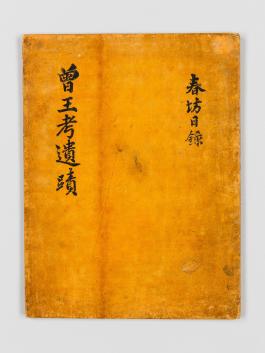 春坊日錄
曾王考遺蹟